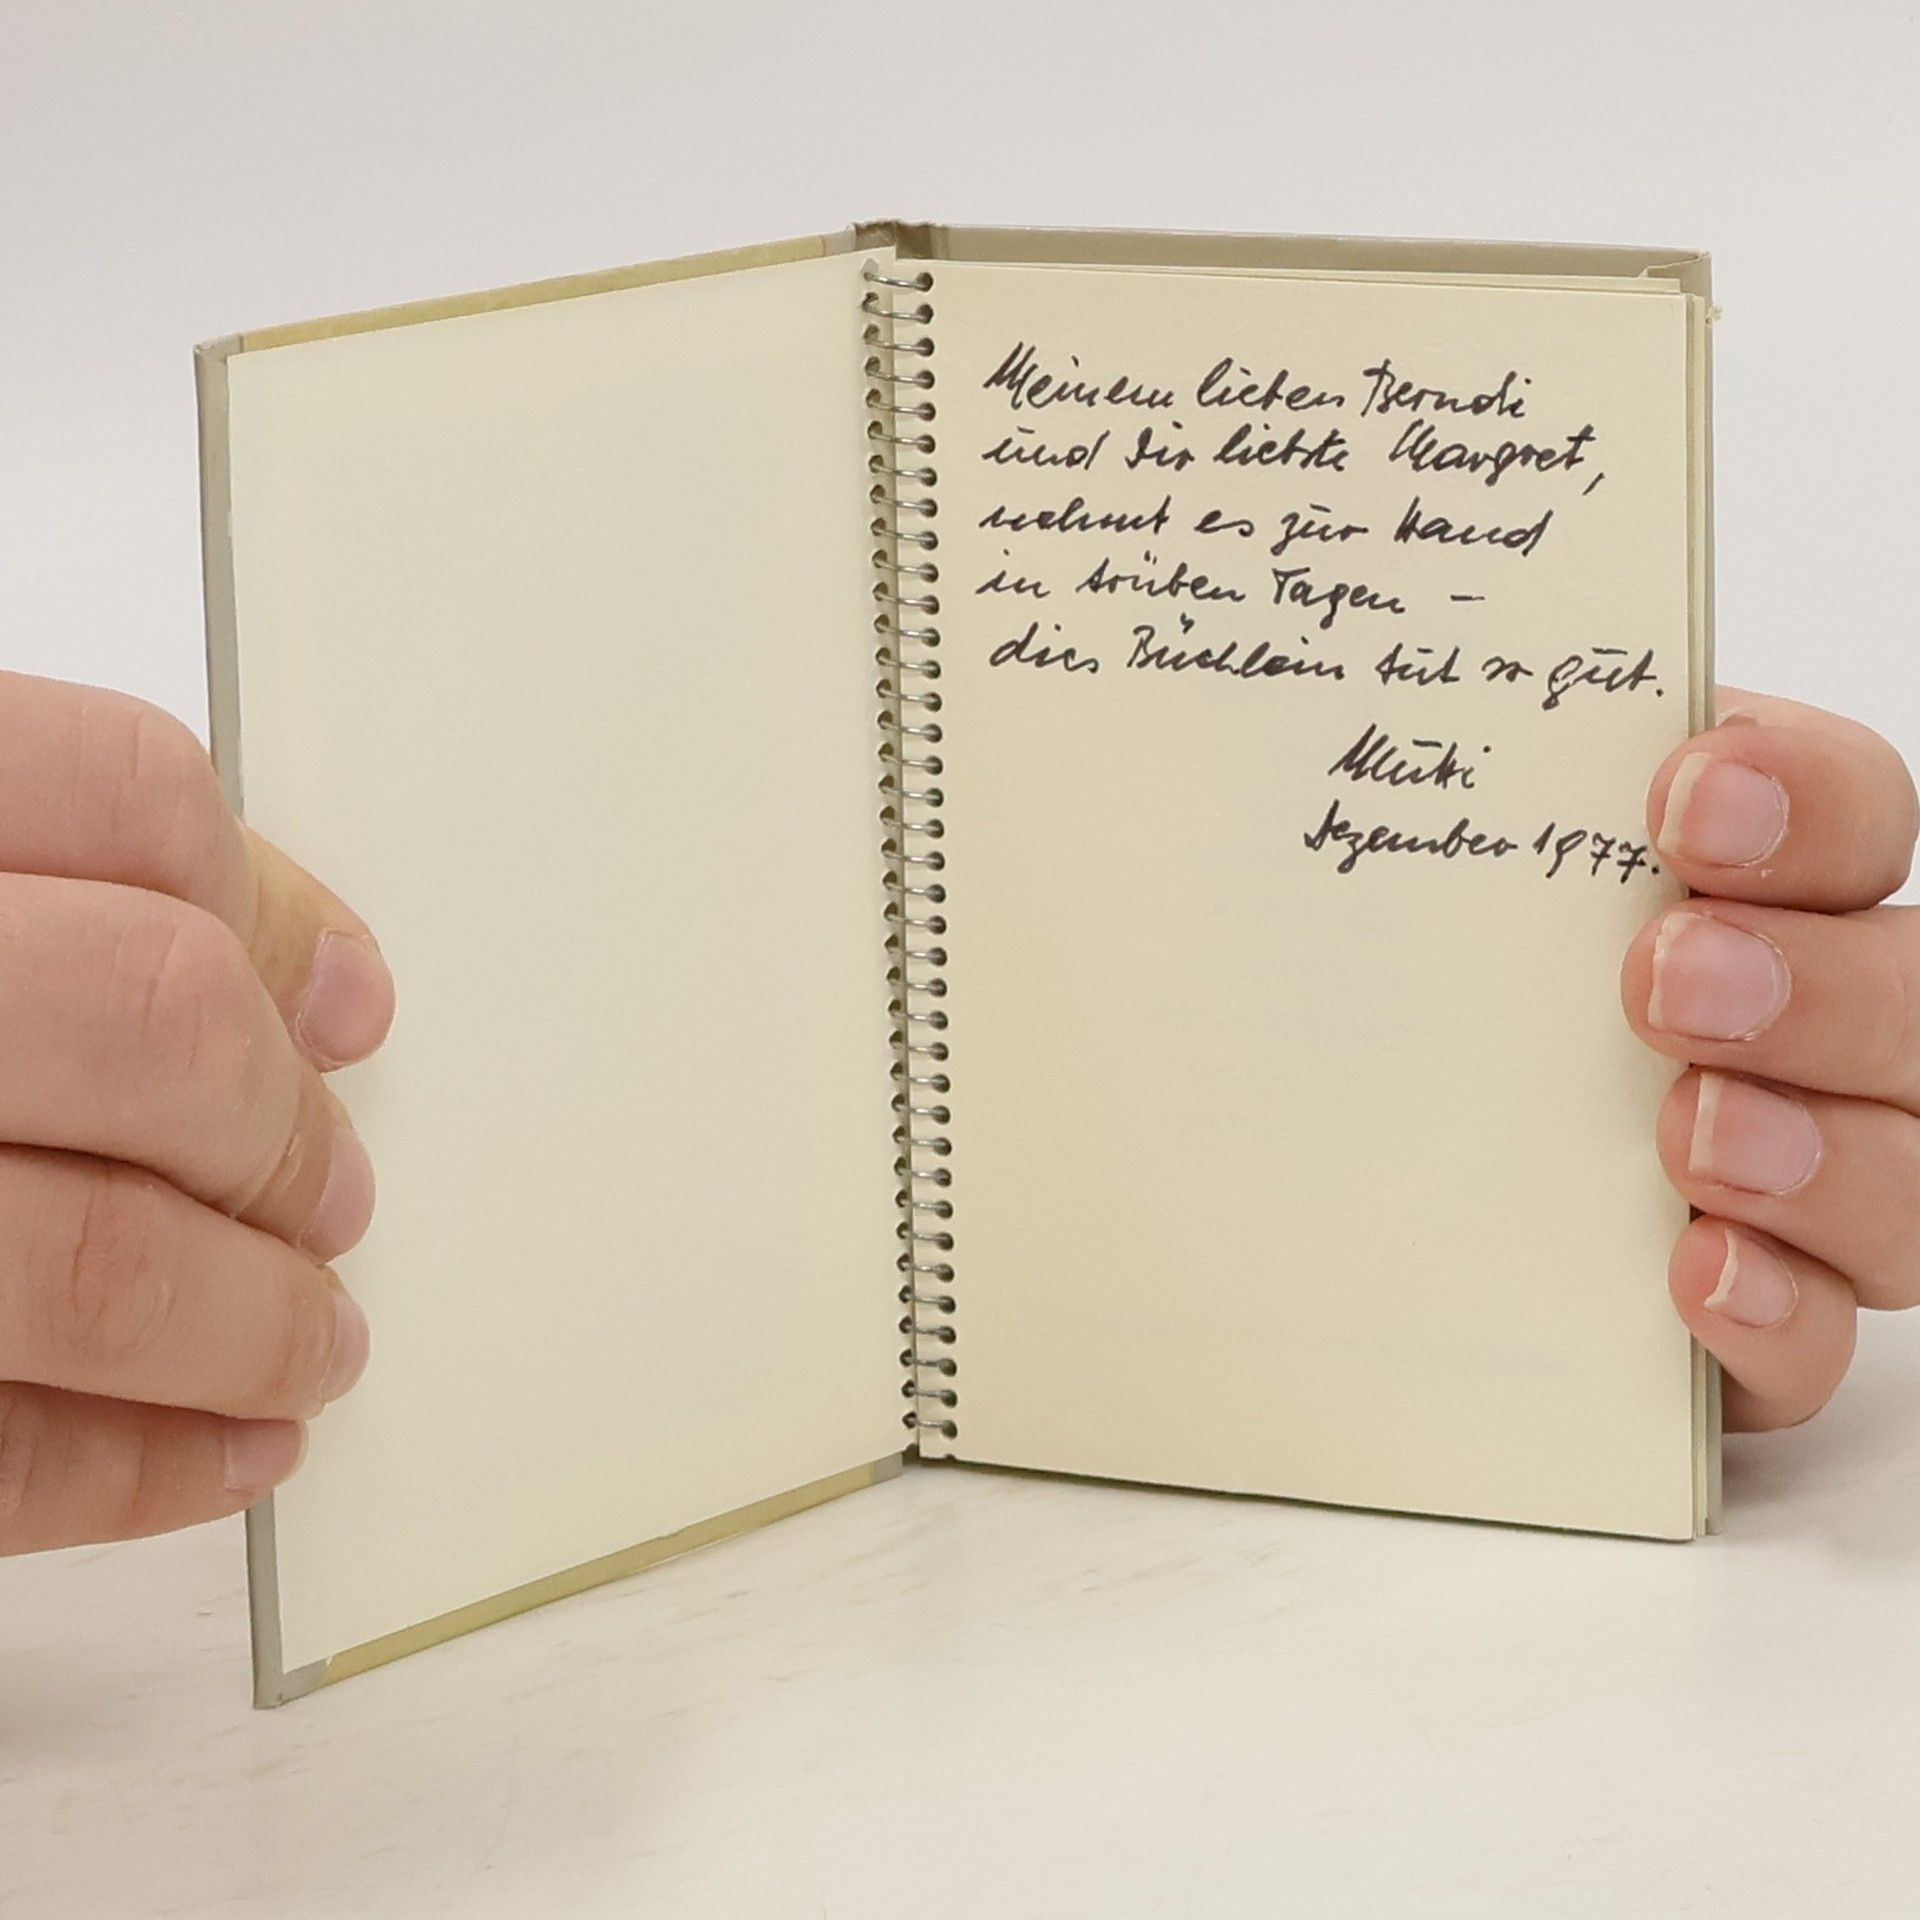 Meinem lieben Berndi
und Dir liebste Margret,
nehmt es zur Hand
in trüben Tagen –
dies Büchlein tut so gut.
Mutti
Dezember 1977.